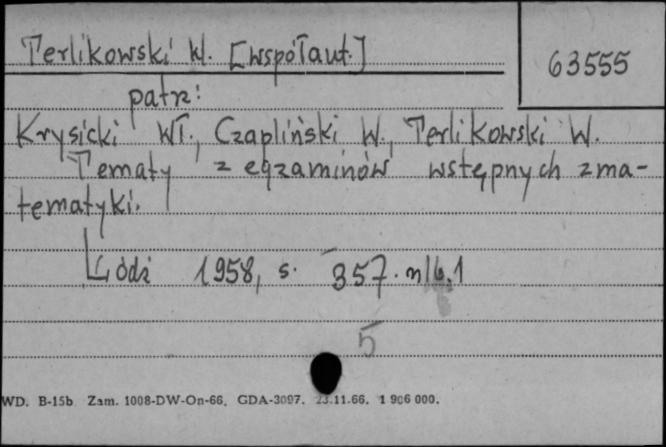 Terlikowski W. [współaut.]
63555
patrz:
Krysicki Wł., Czapliński W., Terlikowski W.
Tematy z egzaminów wstępnych z ma-
tematyki.
Łódź 1958, s. 357. nlb. 1
5
WD. B-15b Zam. 1008-DW-On-66. GDA-3097. 23.11.66. 1 906 000.